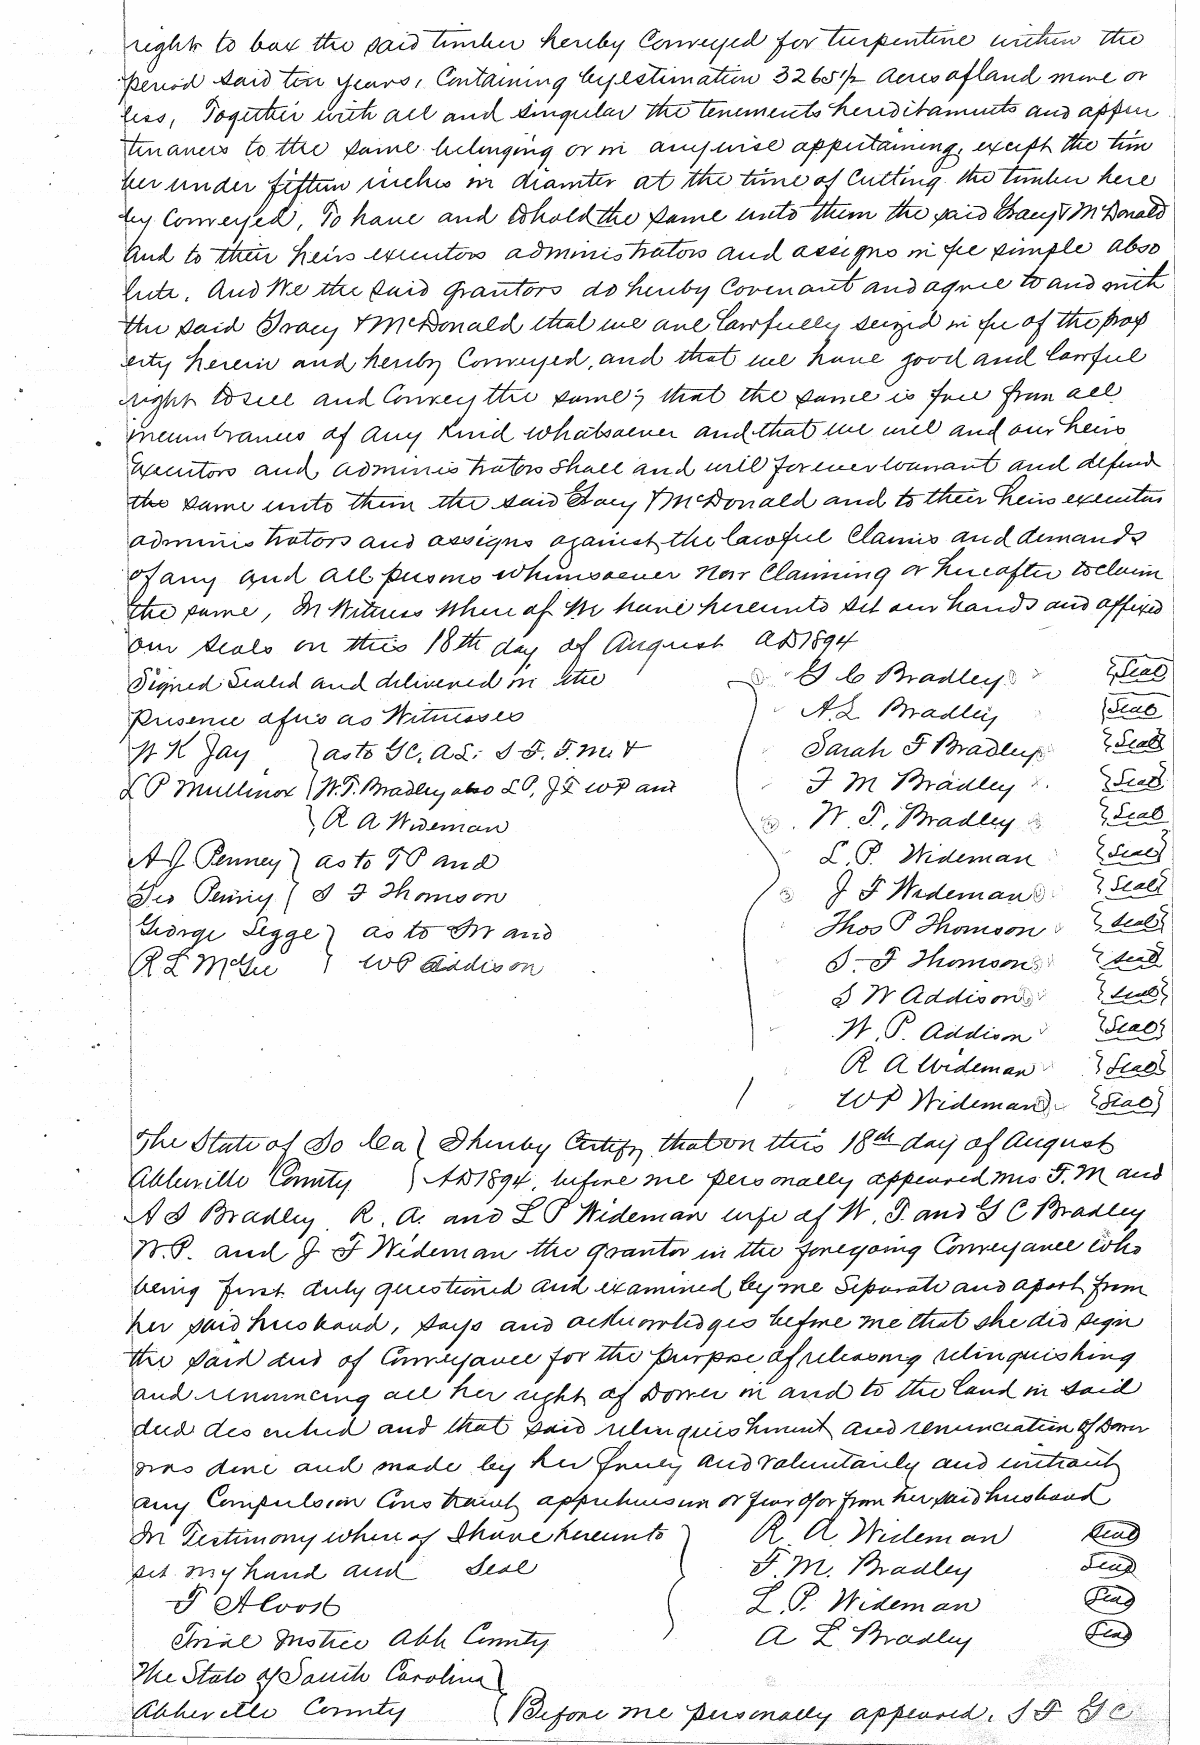 right to box the said timber hereby Conveyed for turpentine within the
period said ten years, Containing by estimation 3265½ acres of land more or
less, Together with all and singular the tenements hereditaments and appur
tenances to the same belonging or in anywise appertaining, except the tim
ber under fifteen inches in diamter at the time of cutting the timber here
by Conveyed, To have and to hold the same unto them the said Gracy & McDonald
and to their heirs executors administrators and assigns in fee simple abso
lute. And We the said grantors do hereby Covenant and agree to and with
the said Gracy & McDonald that we are lawfully seized in fee of the prop
erty herein and hereby Conveyed, and that we have good and lawful
right to sell and Convey the same; that the same is free from all
incumbrances of any Kind whatsoever and that we will and our heirs
executors and administrators shall and will forever warrant and defend
the same unto them the said Gracy & McDonald and to their heirs executors
administrators and assigns against the lawful Claims and demands
of any and all persons whomsoever Now Claiming or hereafter to claim
the same, In Witness Where of We have hereunto set our hands and affixed
our seals on this 18th day of August AD 1894
Signed Sealed and delivered in the G C Bradley Seal
presence of us as Witnesses A. L Bradley Seal
W K Jay } as to GC, A L; S F, F. M. & Sarah F Bradley Seal
L P Mullinox W. T. Bradley also L P, J F W P and F M Bradley Seal
R A Wideman W. T. Bradley Seal
A J Penney } as to T P and L. P. Wideman Seal
Geo Penny S F Thomson J F Wideman Seal
George Legge } as to S W and Thos P Thomson Seal
R L McGee W P Addison S. F Thomson Seal
S W Addison Seal
W. P. Addison Seal
R A Wideman Seal
W P Wideman Seal
The State of So Ca I hereby Certify that on this 18th day of August
Abbeville County AD 1894, before me personally appeared Mrs F. M and
A L Bradley R. A. and L P Wideman wife of W. T. and G C Bradley
W. P. and J F Wideman the grantor in the foregoing Conveyance who
being first duly questioned and examined by me Separate and apart from
her said husband, says and acknowledges before me that she did sign
the said deed of Conveyance for the purpose of releasing relinquishing
and renouncing all her right of Dower in and to the land in said
deed described and that said relinquishment and renunciation of Dower
was done and made by her freely and voluntarily and without
any Compulsion Constraint apprehension or fear of or from her said husband
In Testimony where of I have hereunto R. A. Wideman Seal
set my hand and Seal F. M. Bradley Seal
L. P. Wideman Seal
Trial Justice Abb County A L Bradley Seal
The State of South Carolina
Abbeville County Before me personally appeared, S F G C